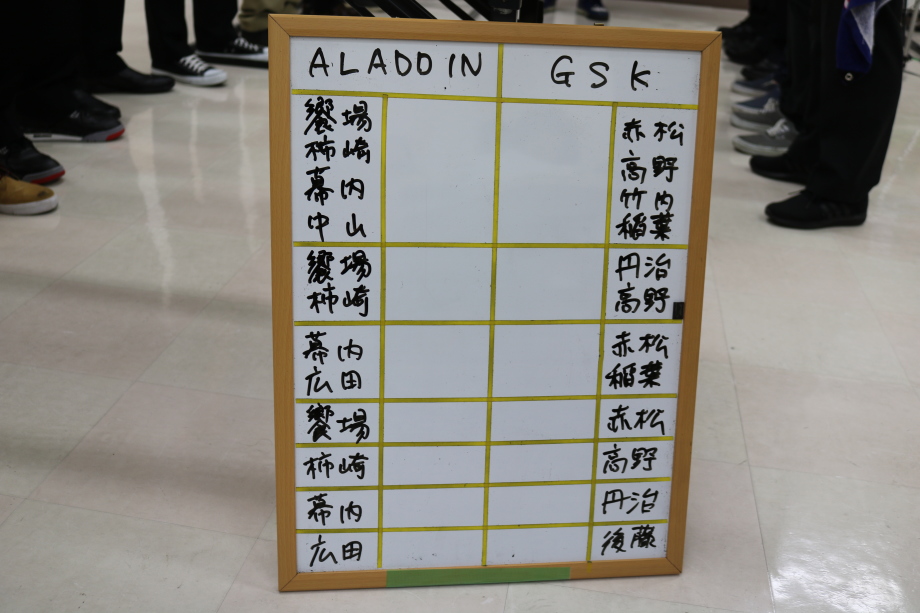 ALADDIN GSK
饗場
柿崎
幕内
中山
赤松
高野
竹内
稲葉
饗場
柿崎
丹治
高野
幕内
広田
赤松
稲葉
饗場
赤松
柿崎
高野
幕内
丹治
広田
後藤